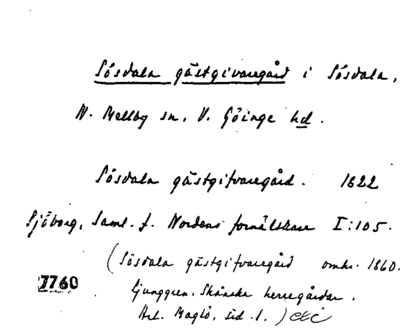 Sösdala gästgivaregård i Sösdala,
N. Mellby sn, V. Göinge hd.
Sösdala gästgifvaregård. 1622
Sjöborg, Saml. f. Nordens fornälskare I:105.
(Sösdala gästgifvaregård omkr. 1660.
7760 Ljunggren. Skånska herregårdar.
Art. Maglö, sid. 1.) etc